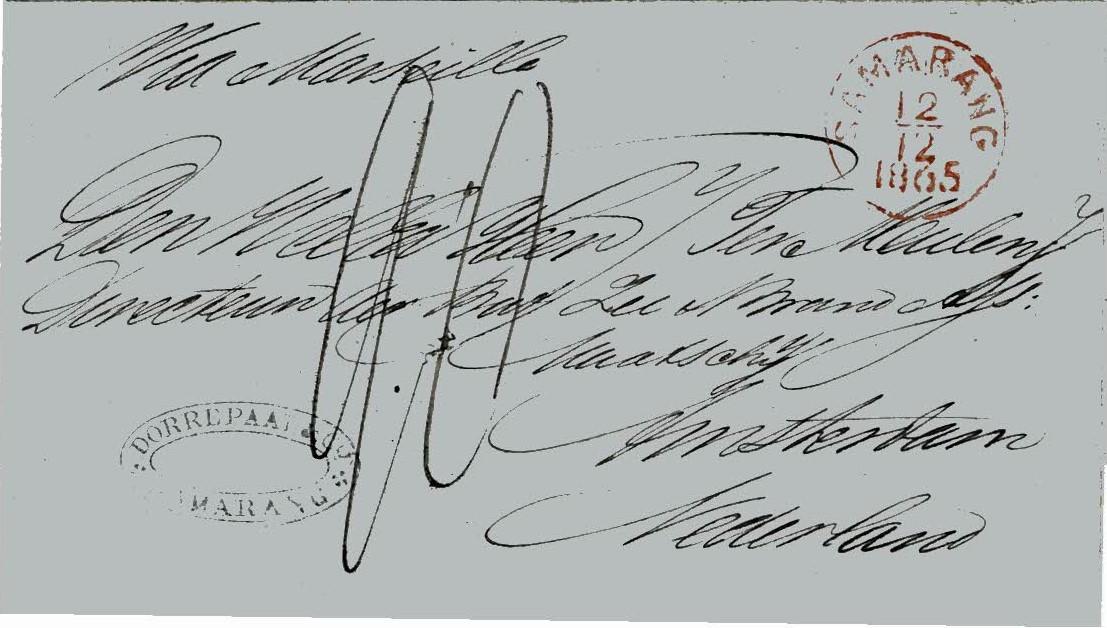 Via Marseille
SAMARANG
12
12
1865
Den WelEd Heer Ter Meulen
Directeur der Zee Brand Ass:
Maatschij
Amsterdam
Nederland
DORREPAAL & Co
SAMARANG